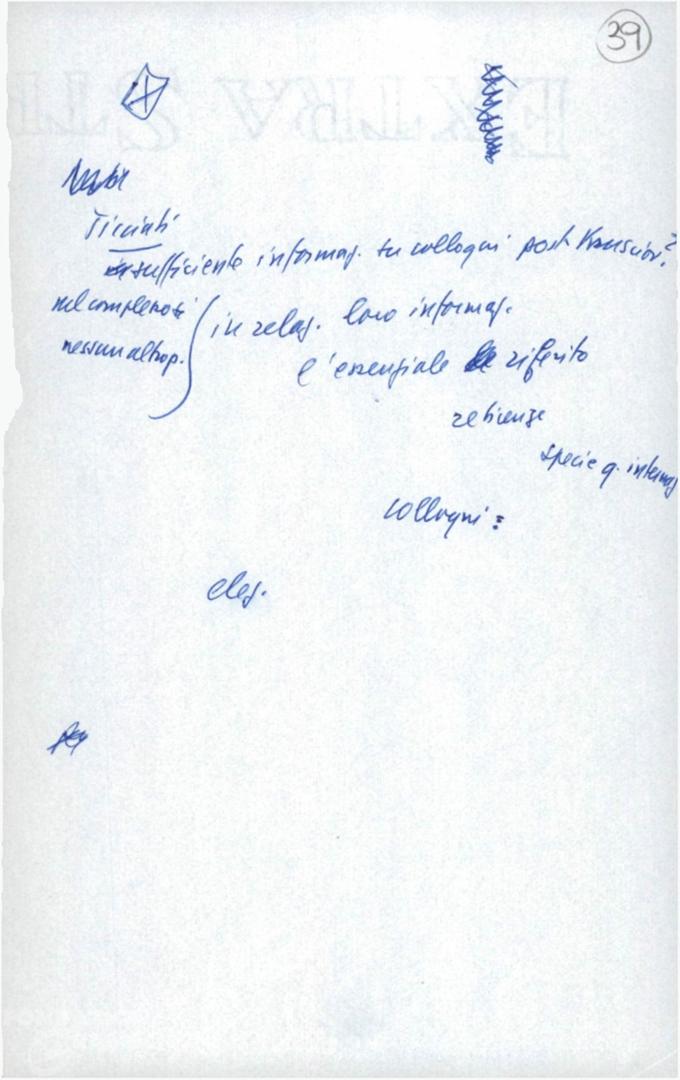 39
Ticciati
sufficiente informaz. su colloqui post Krusciov?
nel complesso
nessun altro p.
in relaz. loro informaz.
l'essenziale riferito
reticenze
specie q. internaz
colloqui:
elez.